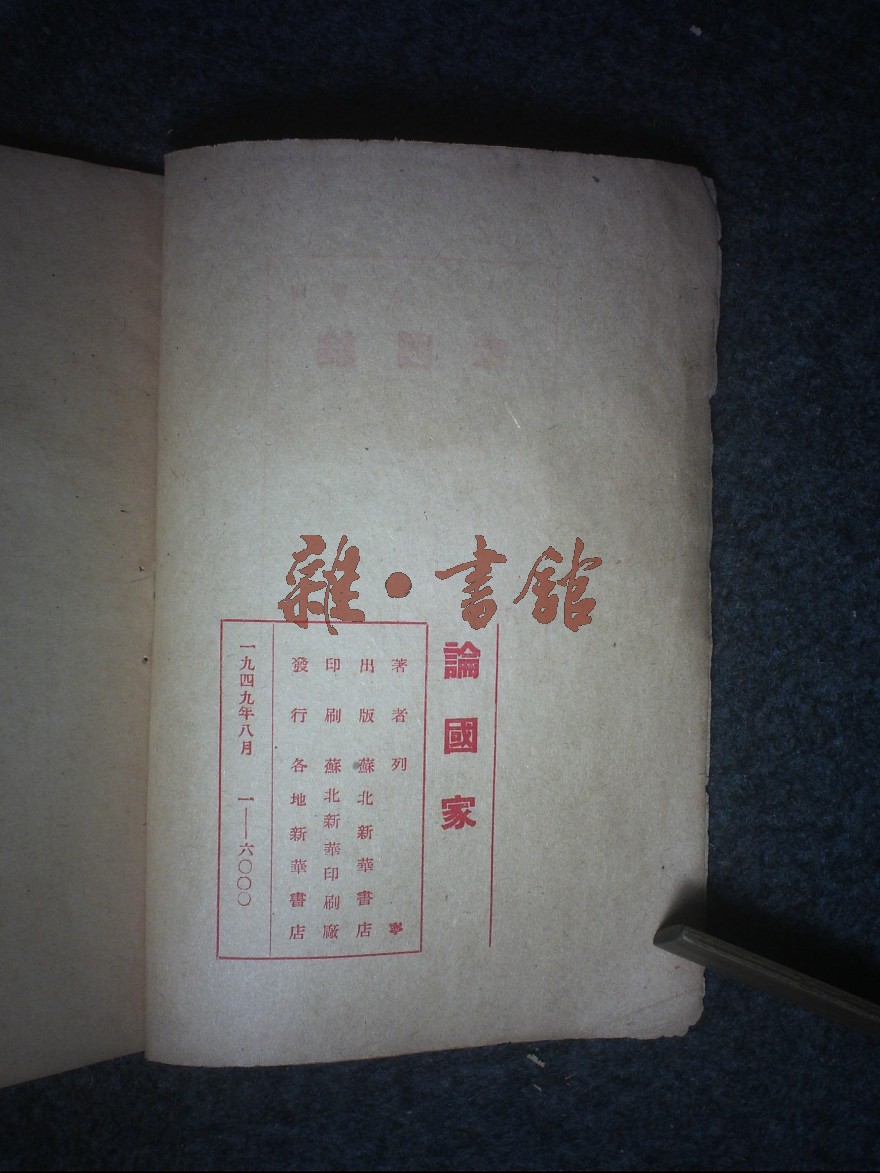 雜·書館
論國家
著者列
出版蘇北新華書店
印刷蘇北新華印刷廠
發行各地新華書店
一九四九年八月 一——六〇〇〇